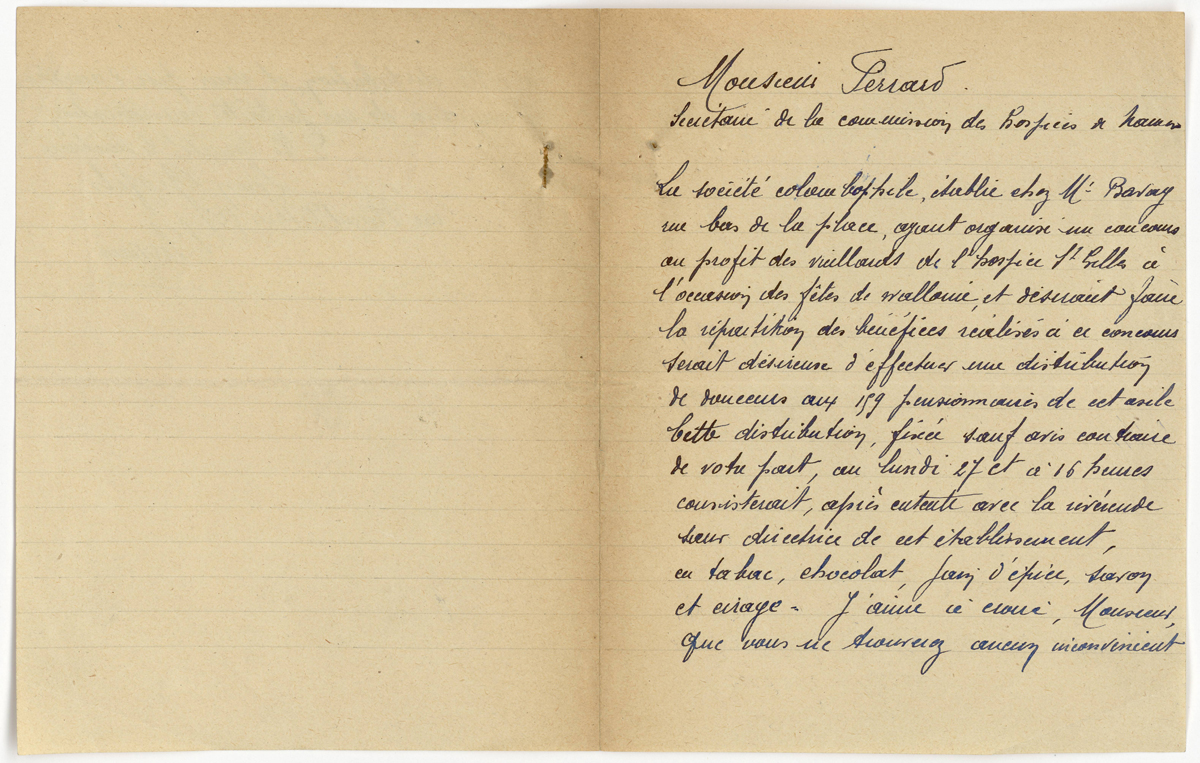 Monsieur Perrard.
Secrétaire de la commission des hospices de Namur
La société colombophile, établie chez Mr Bavay
rue bas de la place, ayant organisé un concours
au profit des vieillards de l'hospice St Gilles à
l'occasion des fêtes de Wallonie, et désirant faire
la répartition des bénéfices réalisés à ce concours
serait désireuse d'effectuer une distribution
de douceurs aux 159 pensionnaires de cet asile
Cette distribution, fixée sauf avis contraire
de votre part, au lundi 27 ct à 16 heures
consisterait, après entente avec la révérende
sœur directrice de cet établissement,
en tabac, chocolat, pain d'épice, savon
et cirage - J'aime à croire, Monsieur,
que vous ne trouverez aucun inconvénient